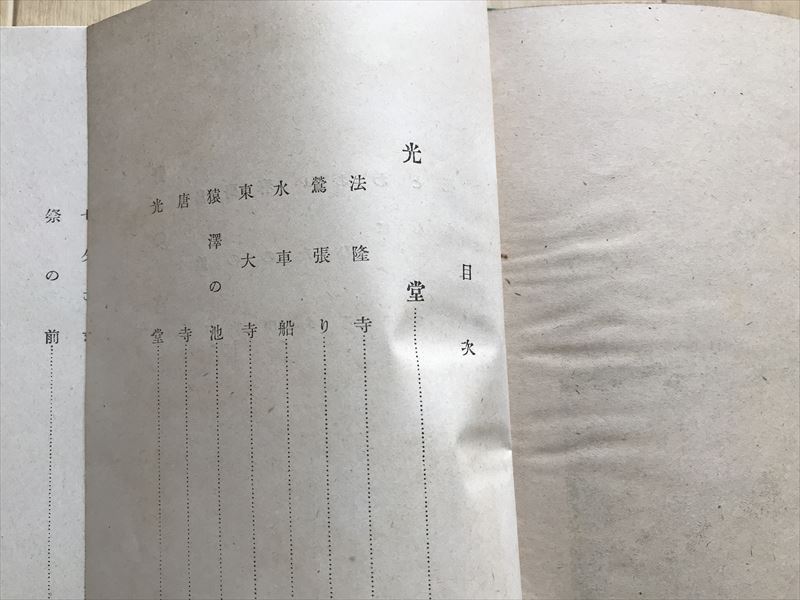 目次
光堂
法隆寺
鶯張り
水車船
東大寺
猿澤の池
唐寺
光堂
祭の前